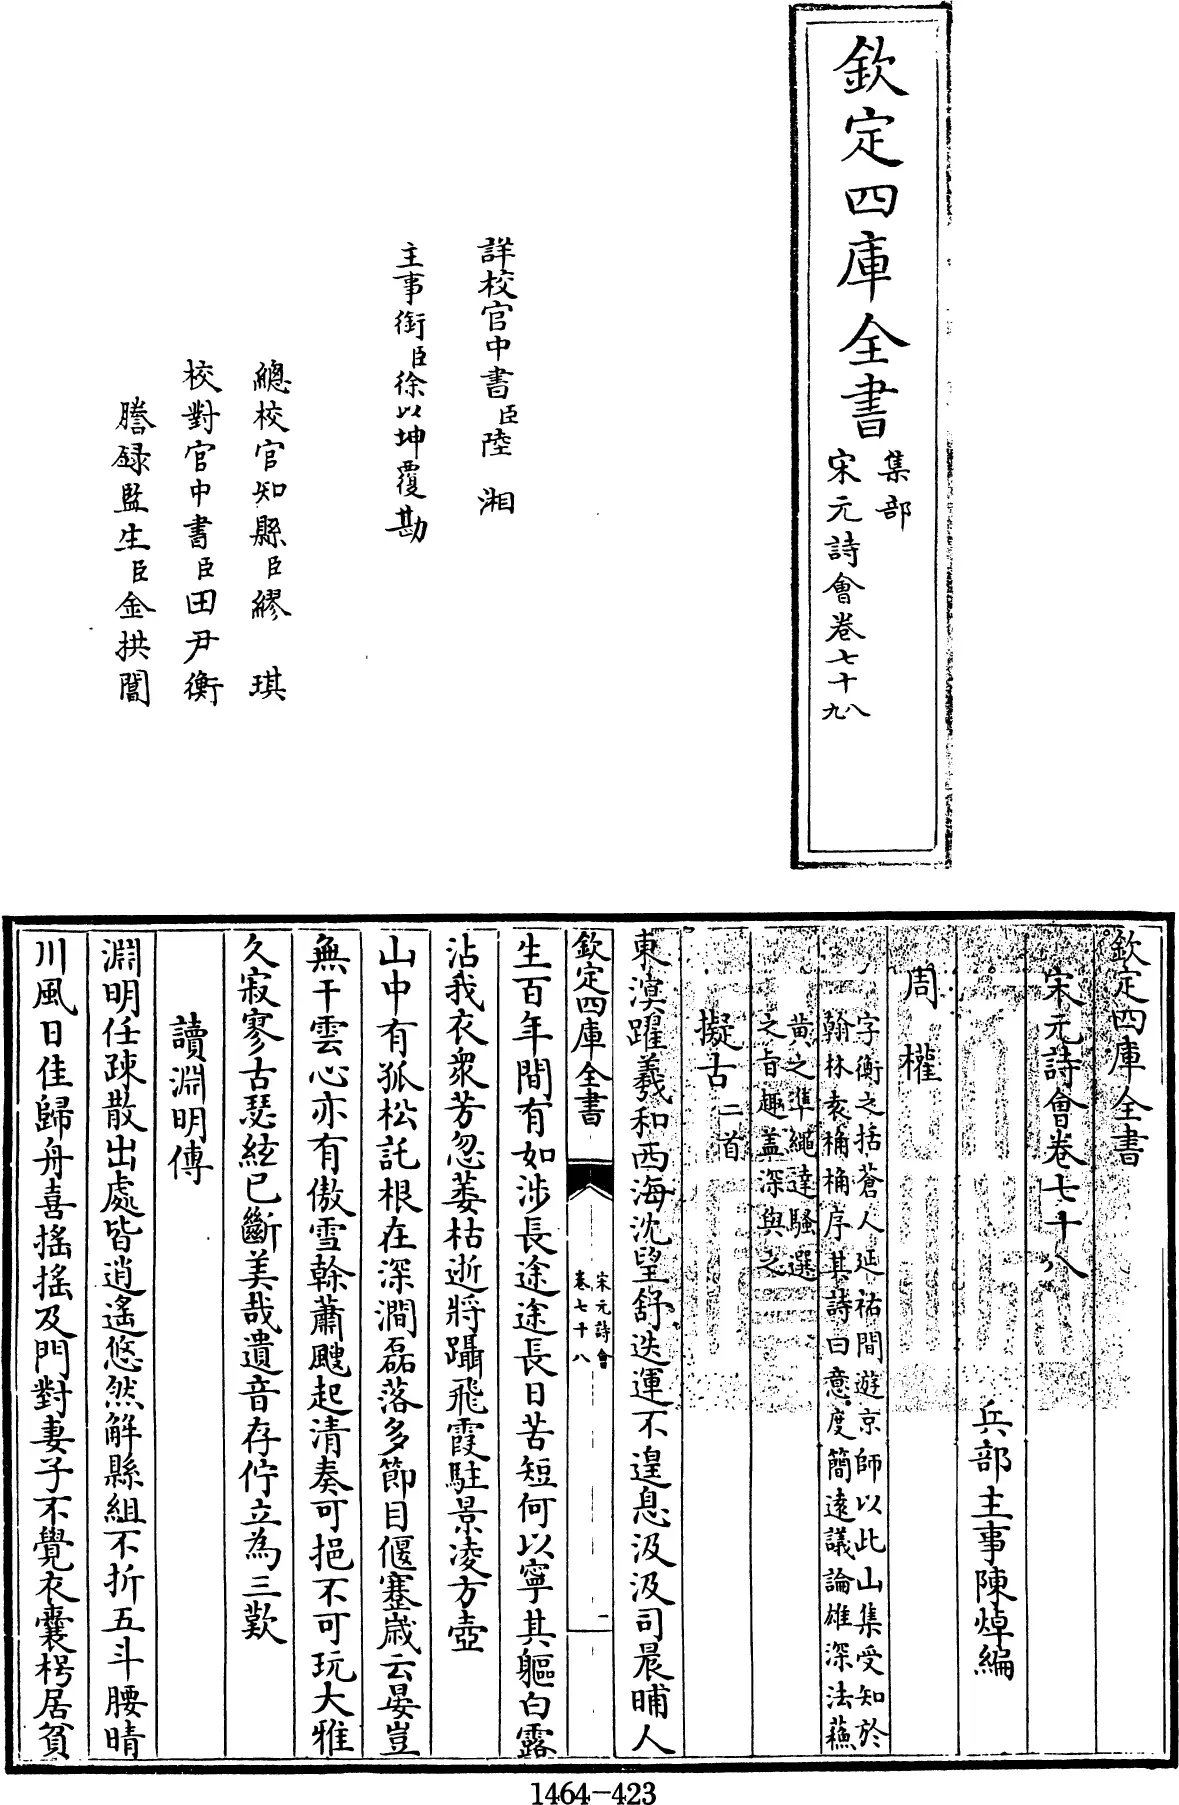 欽定四庫全書
集部
宋元詩會卷七十八
九
詳校官中書臣陸湘
主事銜臣徐以坤覆勘
總校官知縣臣繆琪
校對官中書臣田尹衡
謄録監生臣金拱誾
欽定四庫全書
宋元詩會卷七十八
兵部主事陳焯編
周權
字衡之括蒼人延祐間遊京師以此山集受知於
翰林袁桷桷序其詩曰意度簡遠議論雄深法蘇
黃之準繩達騷選
之旨趣盖深與之
擬古二首
東溟躍羲和西海沈望舒迭運不遑息汲汲司晨晡人
欽定四庫全書
宋元詩會
卷七十八
一
生百年間有如涉長途途長日苦短何以寧其軀白露
沾我衣衆芳忽萎枯逝將躡飛霞駐景凌方壺
山中有孤松託根在深澗磊落多節目偃蹇歲云晏豈
無干雲心亦有傲雪榦蕭颼起清奏可挹不可玩大雅
久寂寥古瑟絃已斷美哉遺音存佇立為三歎
讀淵明傳
淵明任疎散出處皆逍遙悠然解縣組不折五斗腰晴
川風日佳歸舟喜搖搖及門對妻子不覺衣囊枵居貧
1464-423